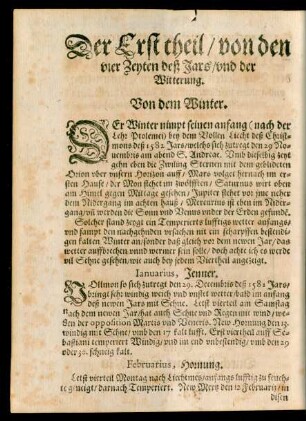 Der Erst theil / von den
vier Zeyten deß Jars / vnd der
Witterung.
Von dem Winter.
DEr Winter nimpt seinen anfang (nach der
Lehr Ptolemei) bey dem Vollen Liecht deß Christ-
mons deß 1582 Jars / welchs sich zutregt den 29 No-
uembris am abend S. Andreae. Vnd dieselbig zeyt
gehn eben die Zwilling Sternen mit dem gebildeten
Orion vber vnsern Horizon auff / Mars volget hernach im er-
sten Hause / der Mon stehet im zwölfften / Saturnus wirt oben
am Himel gegen Mittage gesehen / Jupiter stehet vor jme neher
dem Nidergang im achten hauß / Mercurius ist eben im Nider-
gang / vñ werden die Sonn vnd Venus vnder der Erden gefunde.
Solcher stand zeygt ein Temperirts lufftigs wetter anfangs /
vnd sampt den nachgehenden vrsachen nit ein scharpffen bestendi-
gen kalten Winter an / sonder daß gleich vor dem newen Jar / das
wetter auffbrechen / vnd immer lin sein solle / doch achte ich es werde
vil Schne gesehen / wie auch bey jedem Viertheil angezeigt.
Ianuarius, Jenner.
VOllmon so sich zutregt den 29. Decembris deß 1582 Jars /
bringt sehr windig weich vnd wustet wetter / bald im anfang
deß newen Jars mit Schne. Letst viertel am Samstag
nach dem newen Jar / hat auch Schne vnd Regen mit wind / we-
gen der opposition Martis vnd Veneris. New Hornung den 13.
windig mit Schne / vnd den 17 kalt lufft. Erst viertheil auff Se-
bastiani temperiert Windig / vnd im end vnbestendig / vnd den 29
oder 30. schneeig kalt.
Februarius, Hornung.
Letst viertel Montag nach Liechtmes / anfangs lufftig zu feuch-
te geneigt / darnach Temperiert. New Mertz den 12 Februarij / in
disen